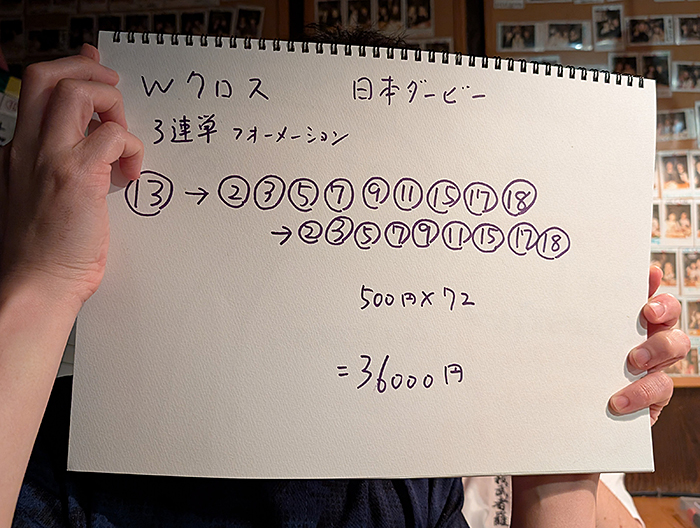 Wクロス 日本ダービー
3連単 フォーメーション
⑬→②③⑤⑦⑨⑪⑮⑰⑱
→②③⑤⑦⑨⑪⑮⑰⑱
500円×72
=36000円